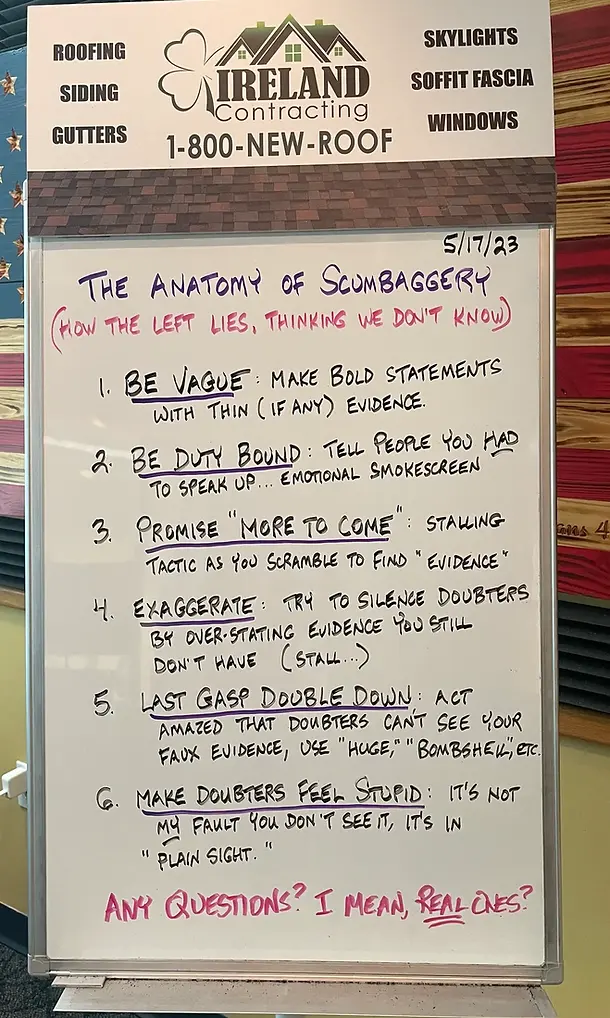 ROOFING
SIDING
GUTTERS
IRELAND
Contracting
1-800-NEW-ROOF
SKYLIGHTS
SOFFIT FASCIA
WINDOWS
5/17/23
THE ANATOMY OF SCUMBAGGERY
(HOW THE LEFT LIES, THINKING WE DON'T KNOW)
1. BE VAGUE: MAKE BOLD STATEMENTS
WITH THIN (IF ANY) EVIDENCE.
2. BE DUTY BOUND: TELL PEOPLE YOU HAD
TO SPEAK UP... EMOTIONAL SMOKESCREEN
3. PROMISE "MORE TO COME": STALLING
TACTIC AS YOU SCRAMBLE TO FIND "EVIDENCE"
4. EXAGGERATE: TRY TO SILENCE DOUBTERS
BY OVER-STATING EVIDENCE YOU STILL
DON'T HAVE (STALL...)
5. LAST GASP DOUBLE DOWN: ACT
AMAZED THAT DOUBTERS CAN'T SEE YOUR
FAUX EVIDENCE, USE "HUGE," "BOMBSHELL", ETC.
6. MAKE DOUBTERS FEEL STUPID: IT'S NOT
MY FAULT YOU DON'T SEE IT, IT'S IN
"PLAIN SIGHT."
ANY QUESTIONS? I MEAN, REAL ONES?